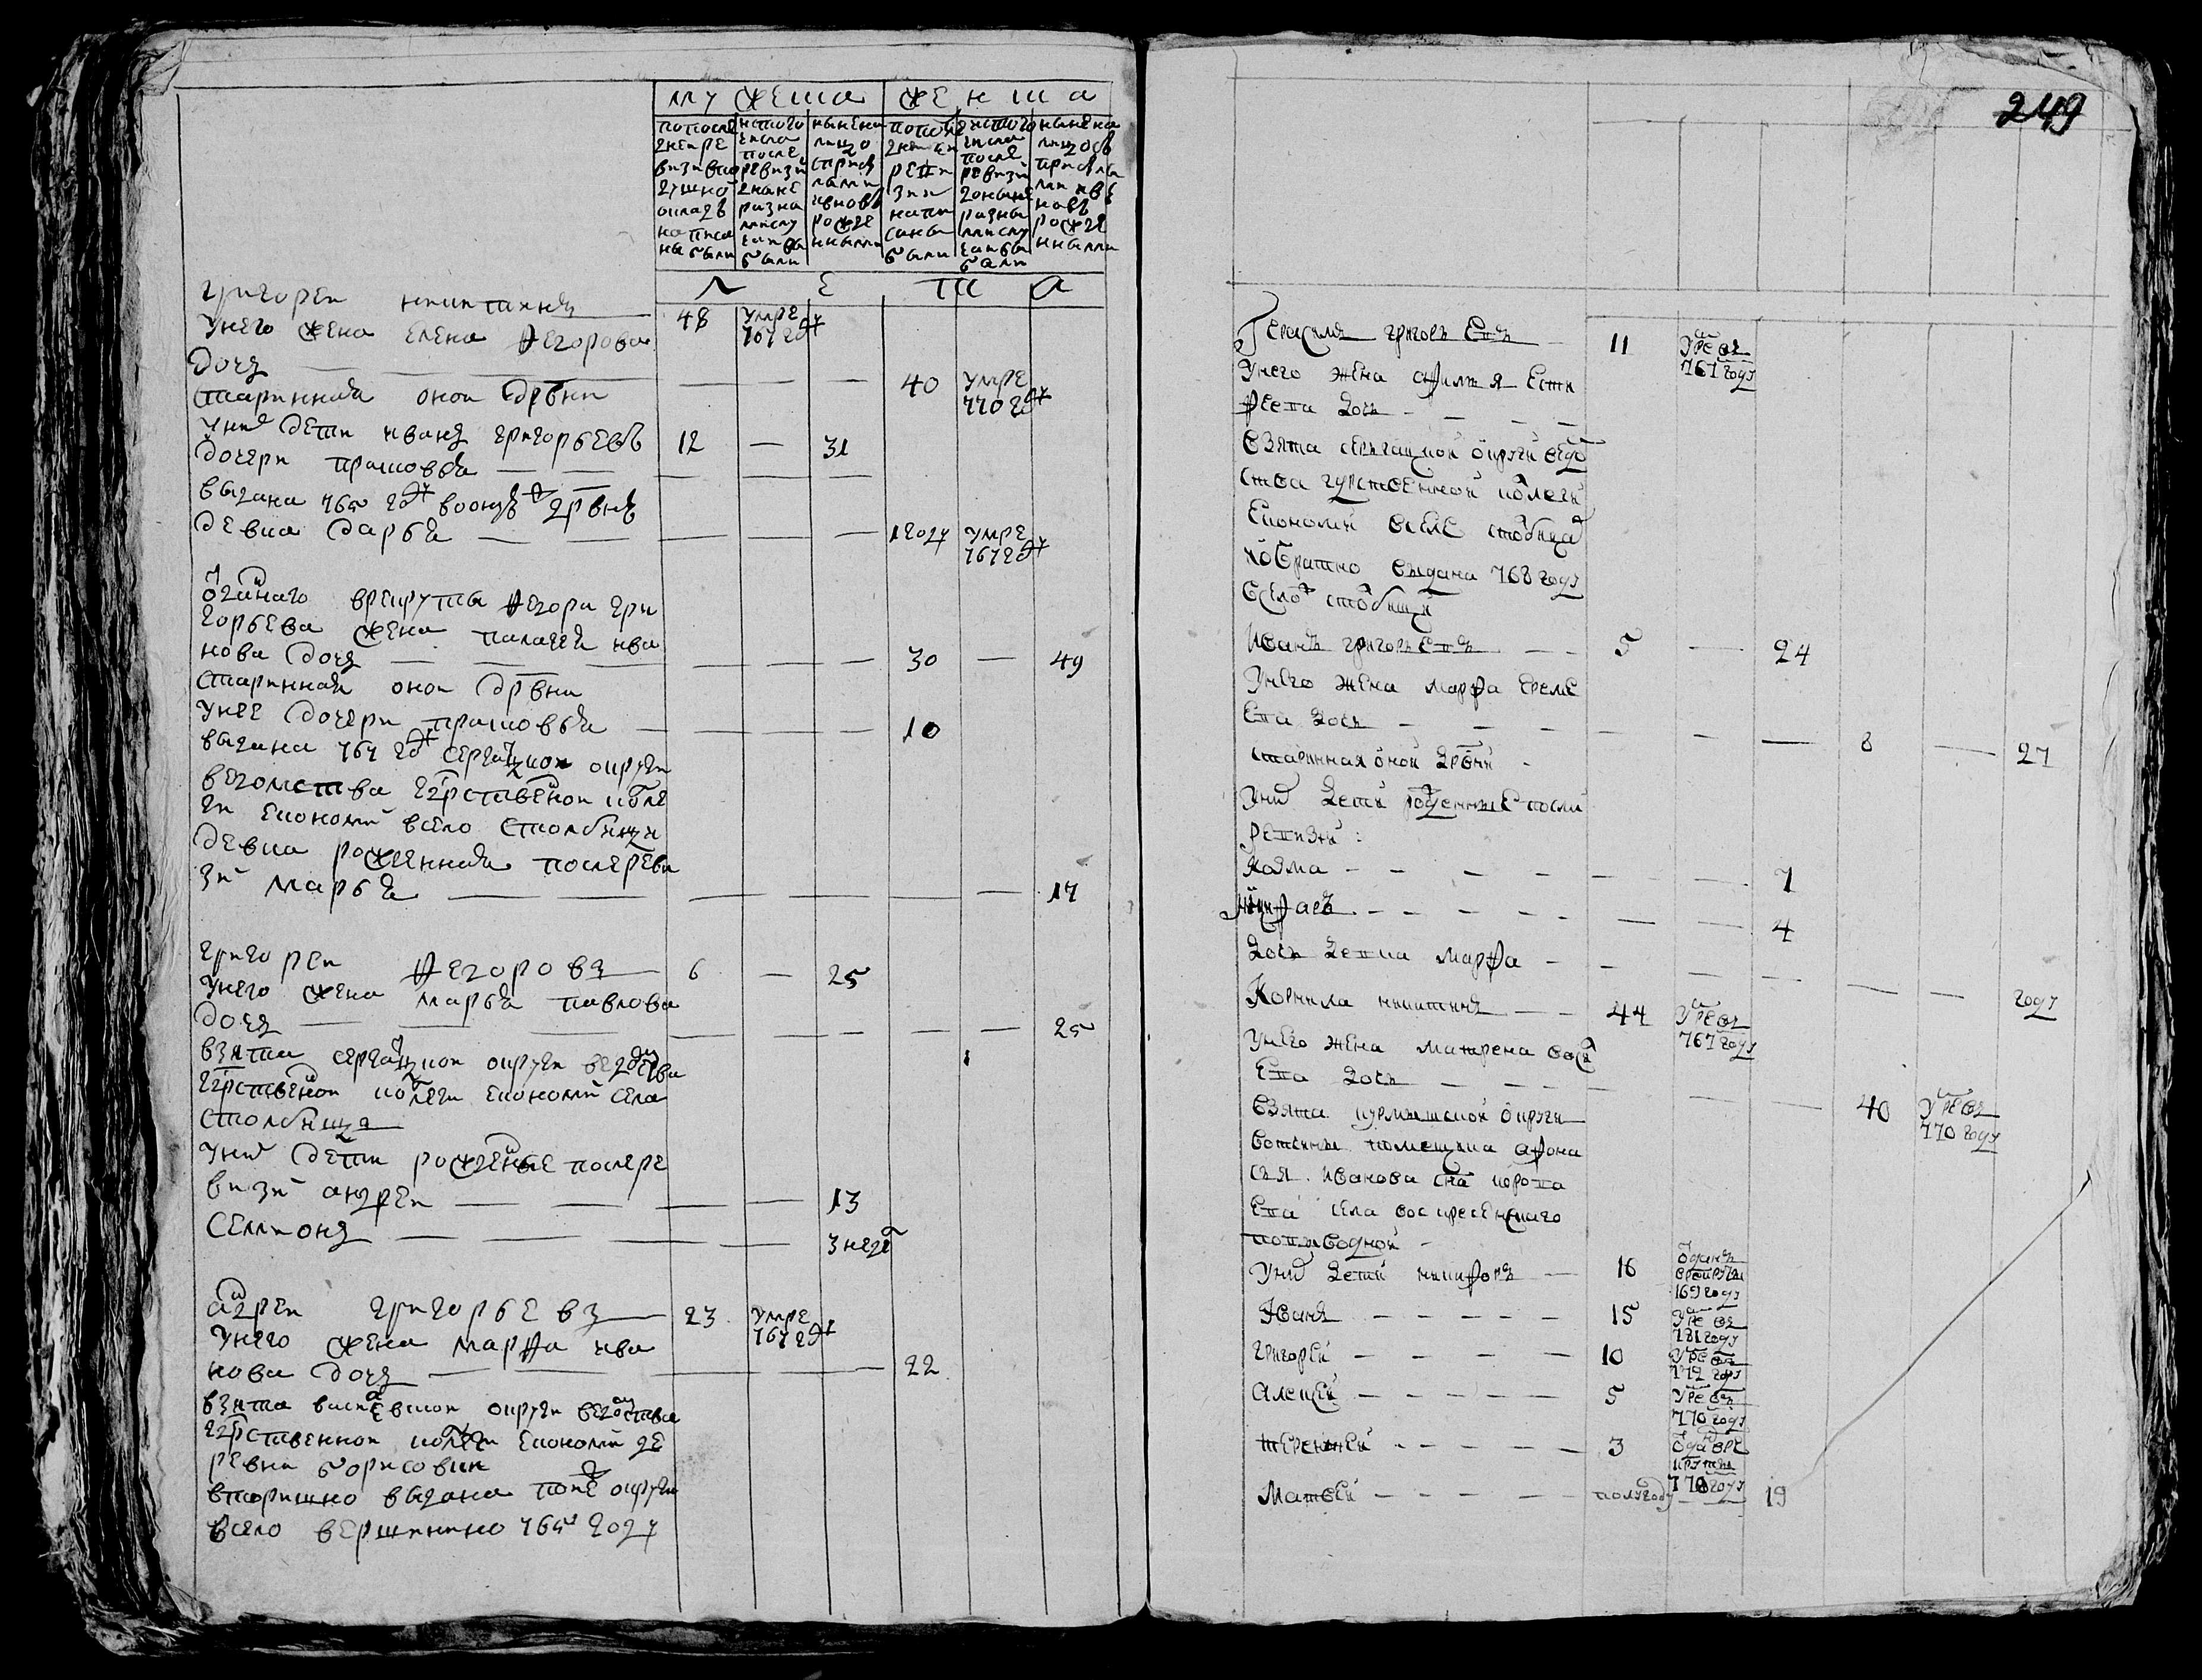 мужеска женска
по после
дней ре
визи в по
душно
окладъ
написа
ны были
ис того
числа
после
ревизи
до ныне
разны
ми слу
чаи вы
были
ныне на
лицо
с при
лыми
и вновь
рожде
нными
по по
сле
дней
реви
зии
напи
саны
были
ис того
числа
после
ревизи
до ныне
разны
ми слу
чаи вы
были
ныне на
лицо съ
прибылы
ми и в
новь
рожде
нными
л е т а
григореи никитинъ 48 умре 767 году
у него жена елена федорова
дочь — — — 40 умре 770 году
старинная онои дрвни
у них дети иванъ григорьевъ 12 — 31
дочери прасковья — —
выдана 765 году в оной дрвнѣ
девка дарья — — — — — 1 году умре 767 году
отданаго врекруты федора гри
горьева жена палагея ива
нова дочь — — — — — — 30 — 49
старинная онои дрвни
у нее дочери прасковья — — — — 10
выдана 767 году сергацкой округи
ведомства гдрственои колле
ги економи в село столбищи
девка рожденная после реви
зи марья — — — — — — — 17
григореи федоровъ — 6 — 25
у него жена марья павлова
дочь — — — — — — — — 25
взята сергацкои округи ведомства
гдрственои колеги економи села
столбища
у них дети рожденые после ре
визи андреи — — — — — 13
семионъ — — — — — 3 недел
андреи григорьевъ — 23 умре 767 году
у него жена марфа ива
нова дочь — — — — — 22
взята в княгевскои округи ведомства
гдрственнои колеги економи де
ревни борисовки
вторишно выдана по не округи
в село вершинино 765 году
249
Герасимъ григорьевъ — 11 умре въ 767 году
У него жена афимья Ести
феева дочь — — — —
взята сергацкой округи ведом
ства гдрственной колеги
Економии в селе столбища
и обратно выдана 768 году
в село столбищи
Иванъ григорьевъ — — 5 — 24
У него жена марфа Ереме
ева дочь — — — — — — — 8 — 27
старинная оной дрвни -
У них дети рожденные после
ревизии:
Козма — — — — — — 7
Никифаръ — — — — — — 4
дочь девка марфа — — — — — — — году
Корнила никитинъ — — 44 умре въ 767 году
У него жена матрена васил
ева дочь — — — — — — 40 умре въ 770 году
взята курмышской округи
вотчины помещика афона
сья Иванова сна корота
ева села воскресенскаго
по выводной -
У них дети никифоръ — 16 отданъ врекруты 769 году
Иванъ — — — — — 15 умре въ 781 году
григорей — — — — 10 умре въ 772 году
Алексей — — — — — 5 умре въ 770 году
терентей — — — — — 3 отда вре круты 770 году
Матвей — — — — — полугоду — 19